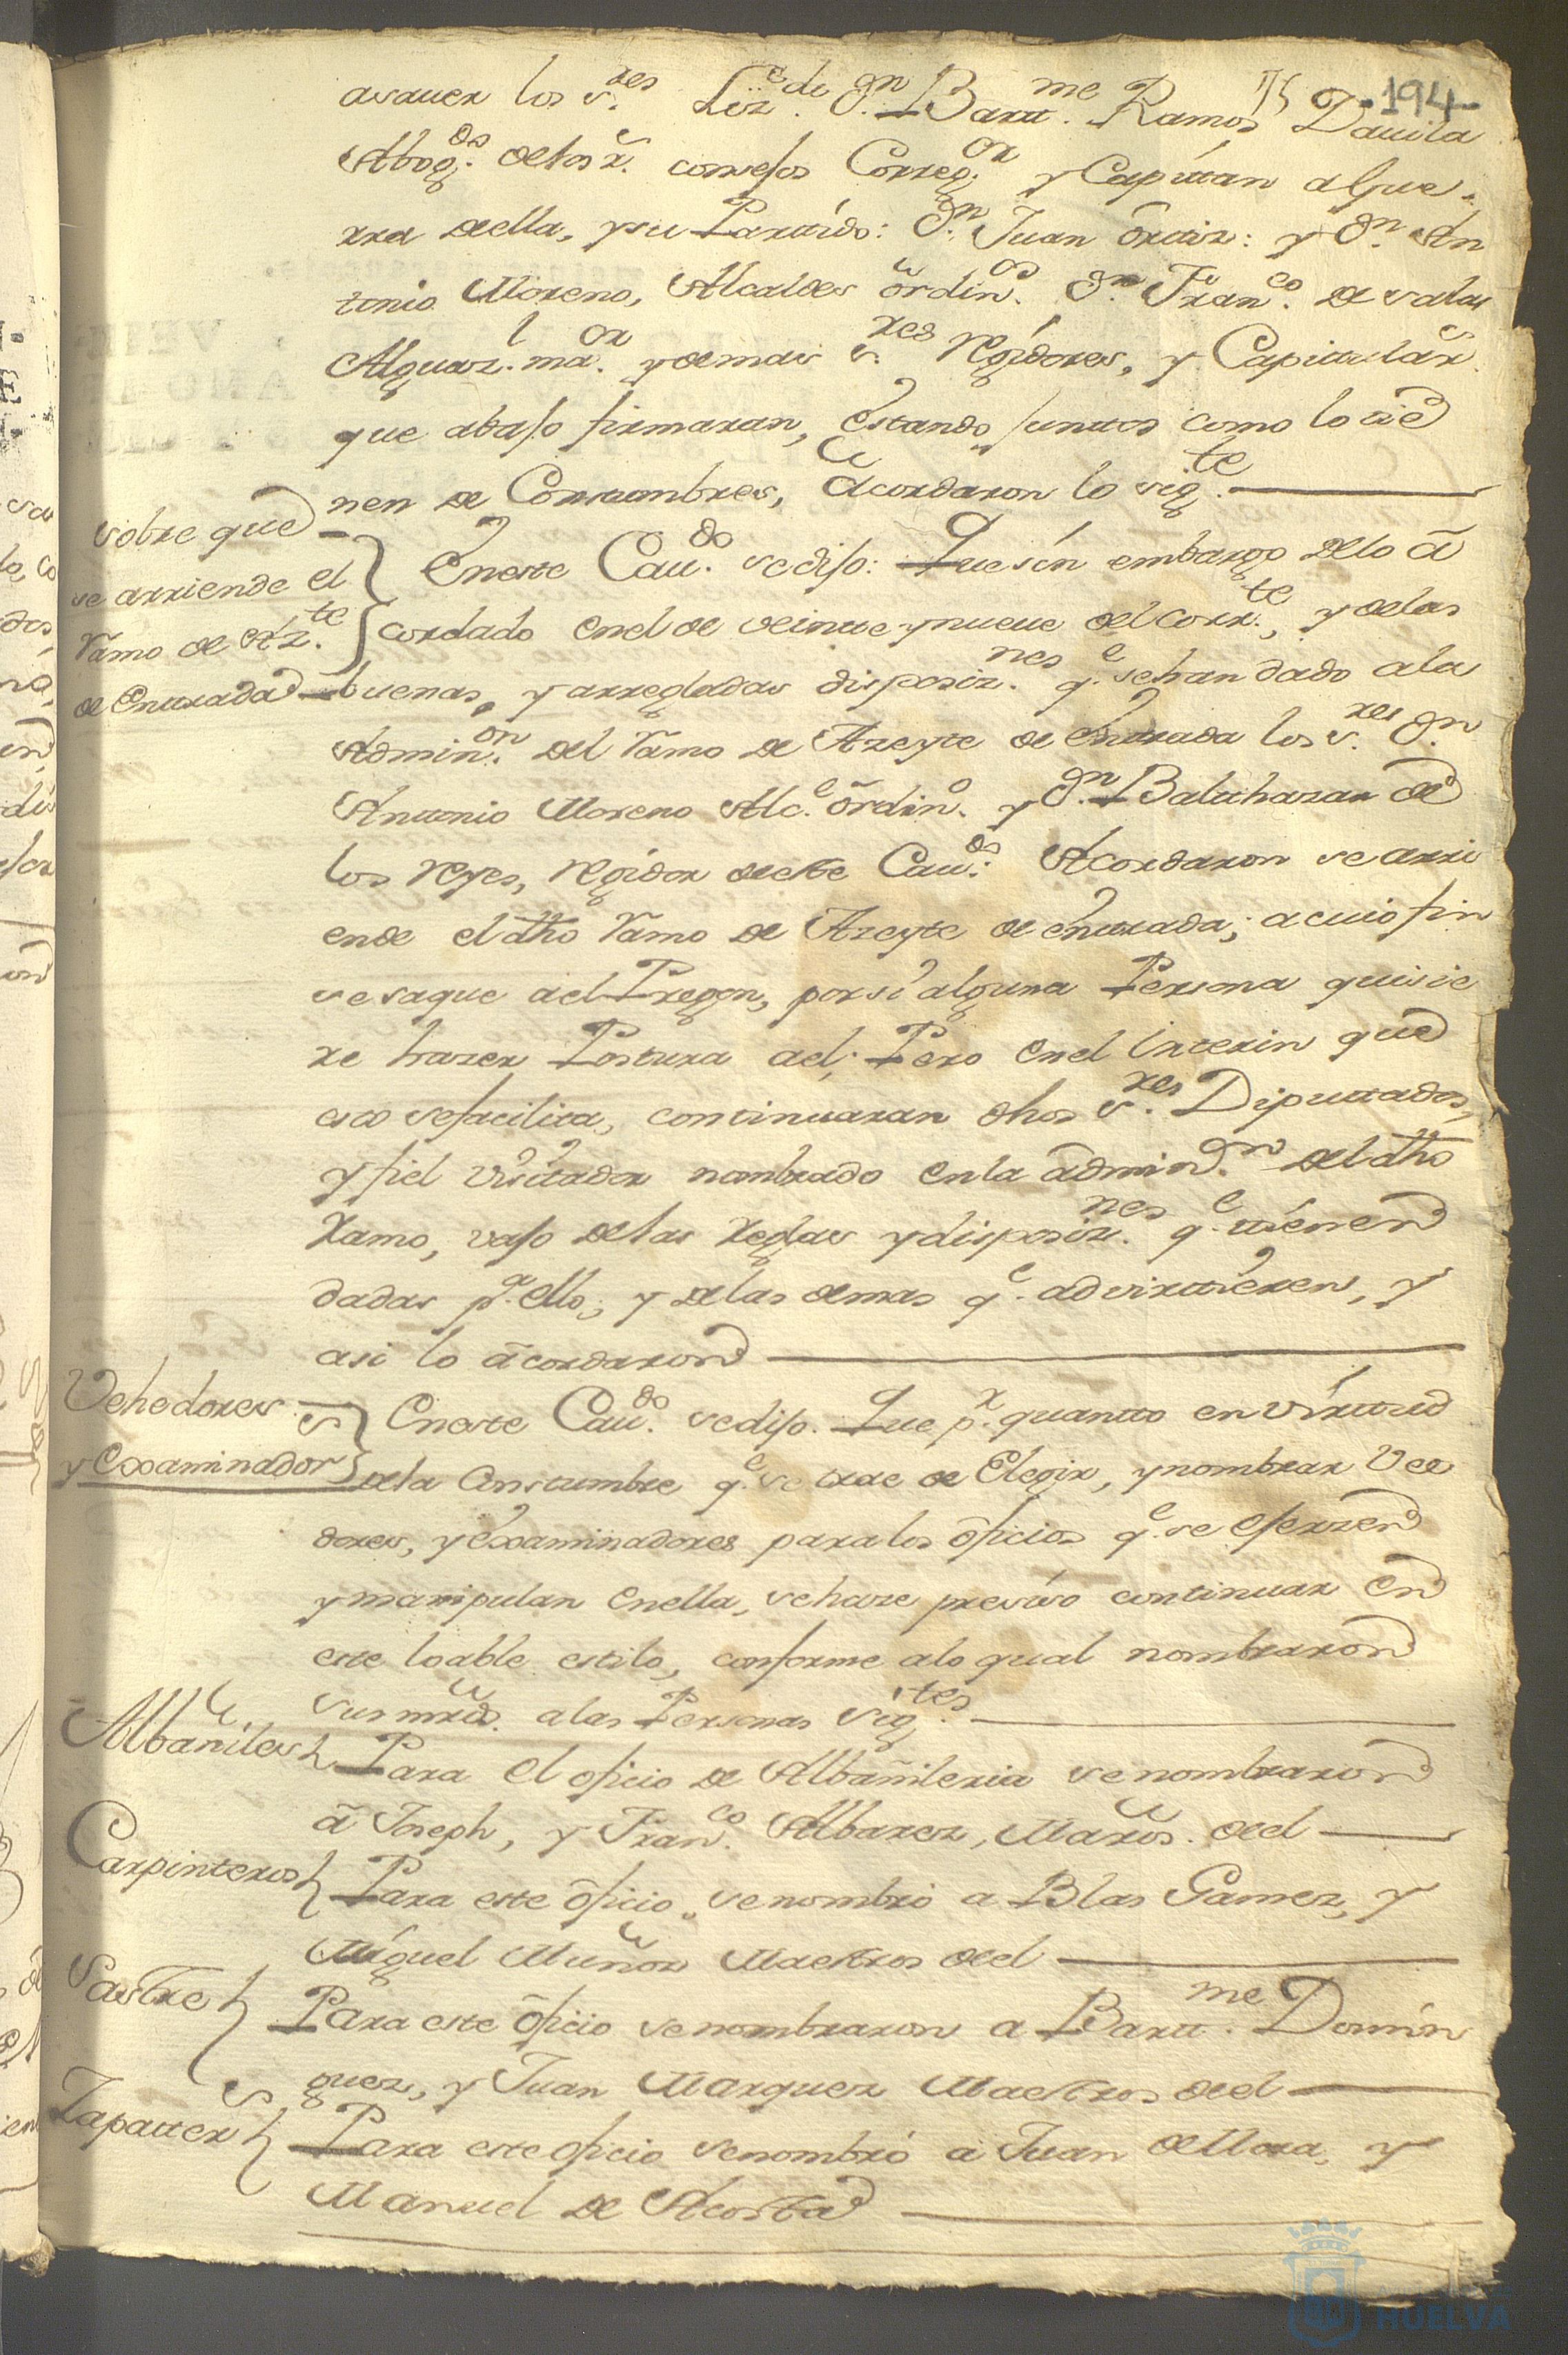 194
asauer los s.res Liz.do Dn Bart.me Ramos Dauila
Abog.do delos R.s consejos Correg.or y Capitan a Gue-
rra della, y su Partido: Dn Juan Ortiz: y Dn An
tonio Moreno, Alcaldes ordin.os Dn Fran.co de salas
Alguaz.l ma.or y demas s.res Regidores, y Capitular.s
que abajo firmaran, estando juntos como lo tie
nen de Constumbres, Acordaron lo sig.te
sobre que
se arriende el
Ramo de Az.te
de entrada
En este Cau.do se dijo: Que sin embargo delo a
cordado en el de veinte y nueue del corr.te, y delas
buenas, y arregladas disposiz.nes q.e se han dado a la
Admin.on del Ramo de Azeyte de entrada los s.res Dn
Antonio Moreno Alc.e ordin.o y Dn Balthazar de
los Reyes, regidor deeste Cau.do Acordaron se arri
ende el dho Ramo de Azeyte de entrada; a cuio fin
se saque ael Pregon, por si alguna Persona quisie
re hazer Postura ael; Pero en el interin que
esto se facilita, continuaran dhos s.res Diputtados,
y fiel Visitador nombrado en la admin.on del dho
Ramo, vajo delas Reglas y disposiz.nes q.e tienen
dadas p.a ello; y delas demas q.e advirttieren, y
asi lo acordaron
Vehedores
y Examinador.s
En este Cau.do se dijo. Que p.r quantto en virttud
dela Constumbre q.e se trae de Elegir, y nombrar Vee
dores, y Examinadores para los oficios q.e se ejerzen
y manipulan en ella, se haze preciso continuar en
este loable estilo, conforme a lo qual nombraron
sus mrds. a las Personas sig.tes
Albañiles
Para el oficio de Albañileria se nombraron
a Joseph, y Fran.co Albarez, Maros. del
Carpinteros
Para este oficio se nombro a Blas Gamez, y
Miguel Muñoz Maestros del
Sastre
Para este oficio se nombraron a Bart.me Domin
guez, y Juan Marquez Maestros del
Zapatter.s
Para este oficio se nombró a Juan de Mora, y
Manuel de Acosta
HUELVA